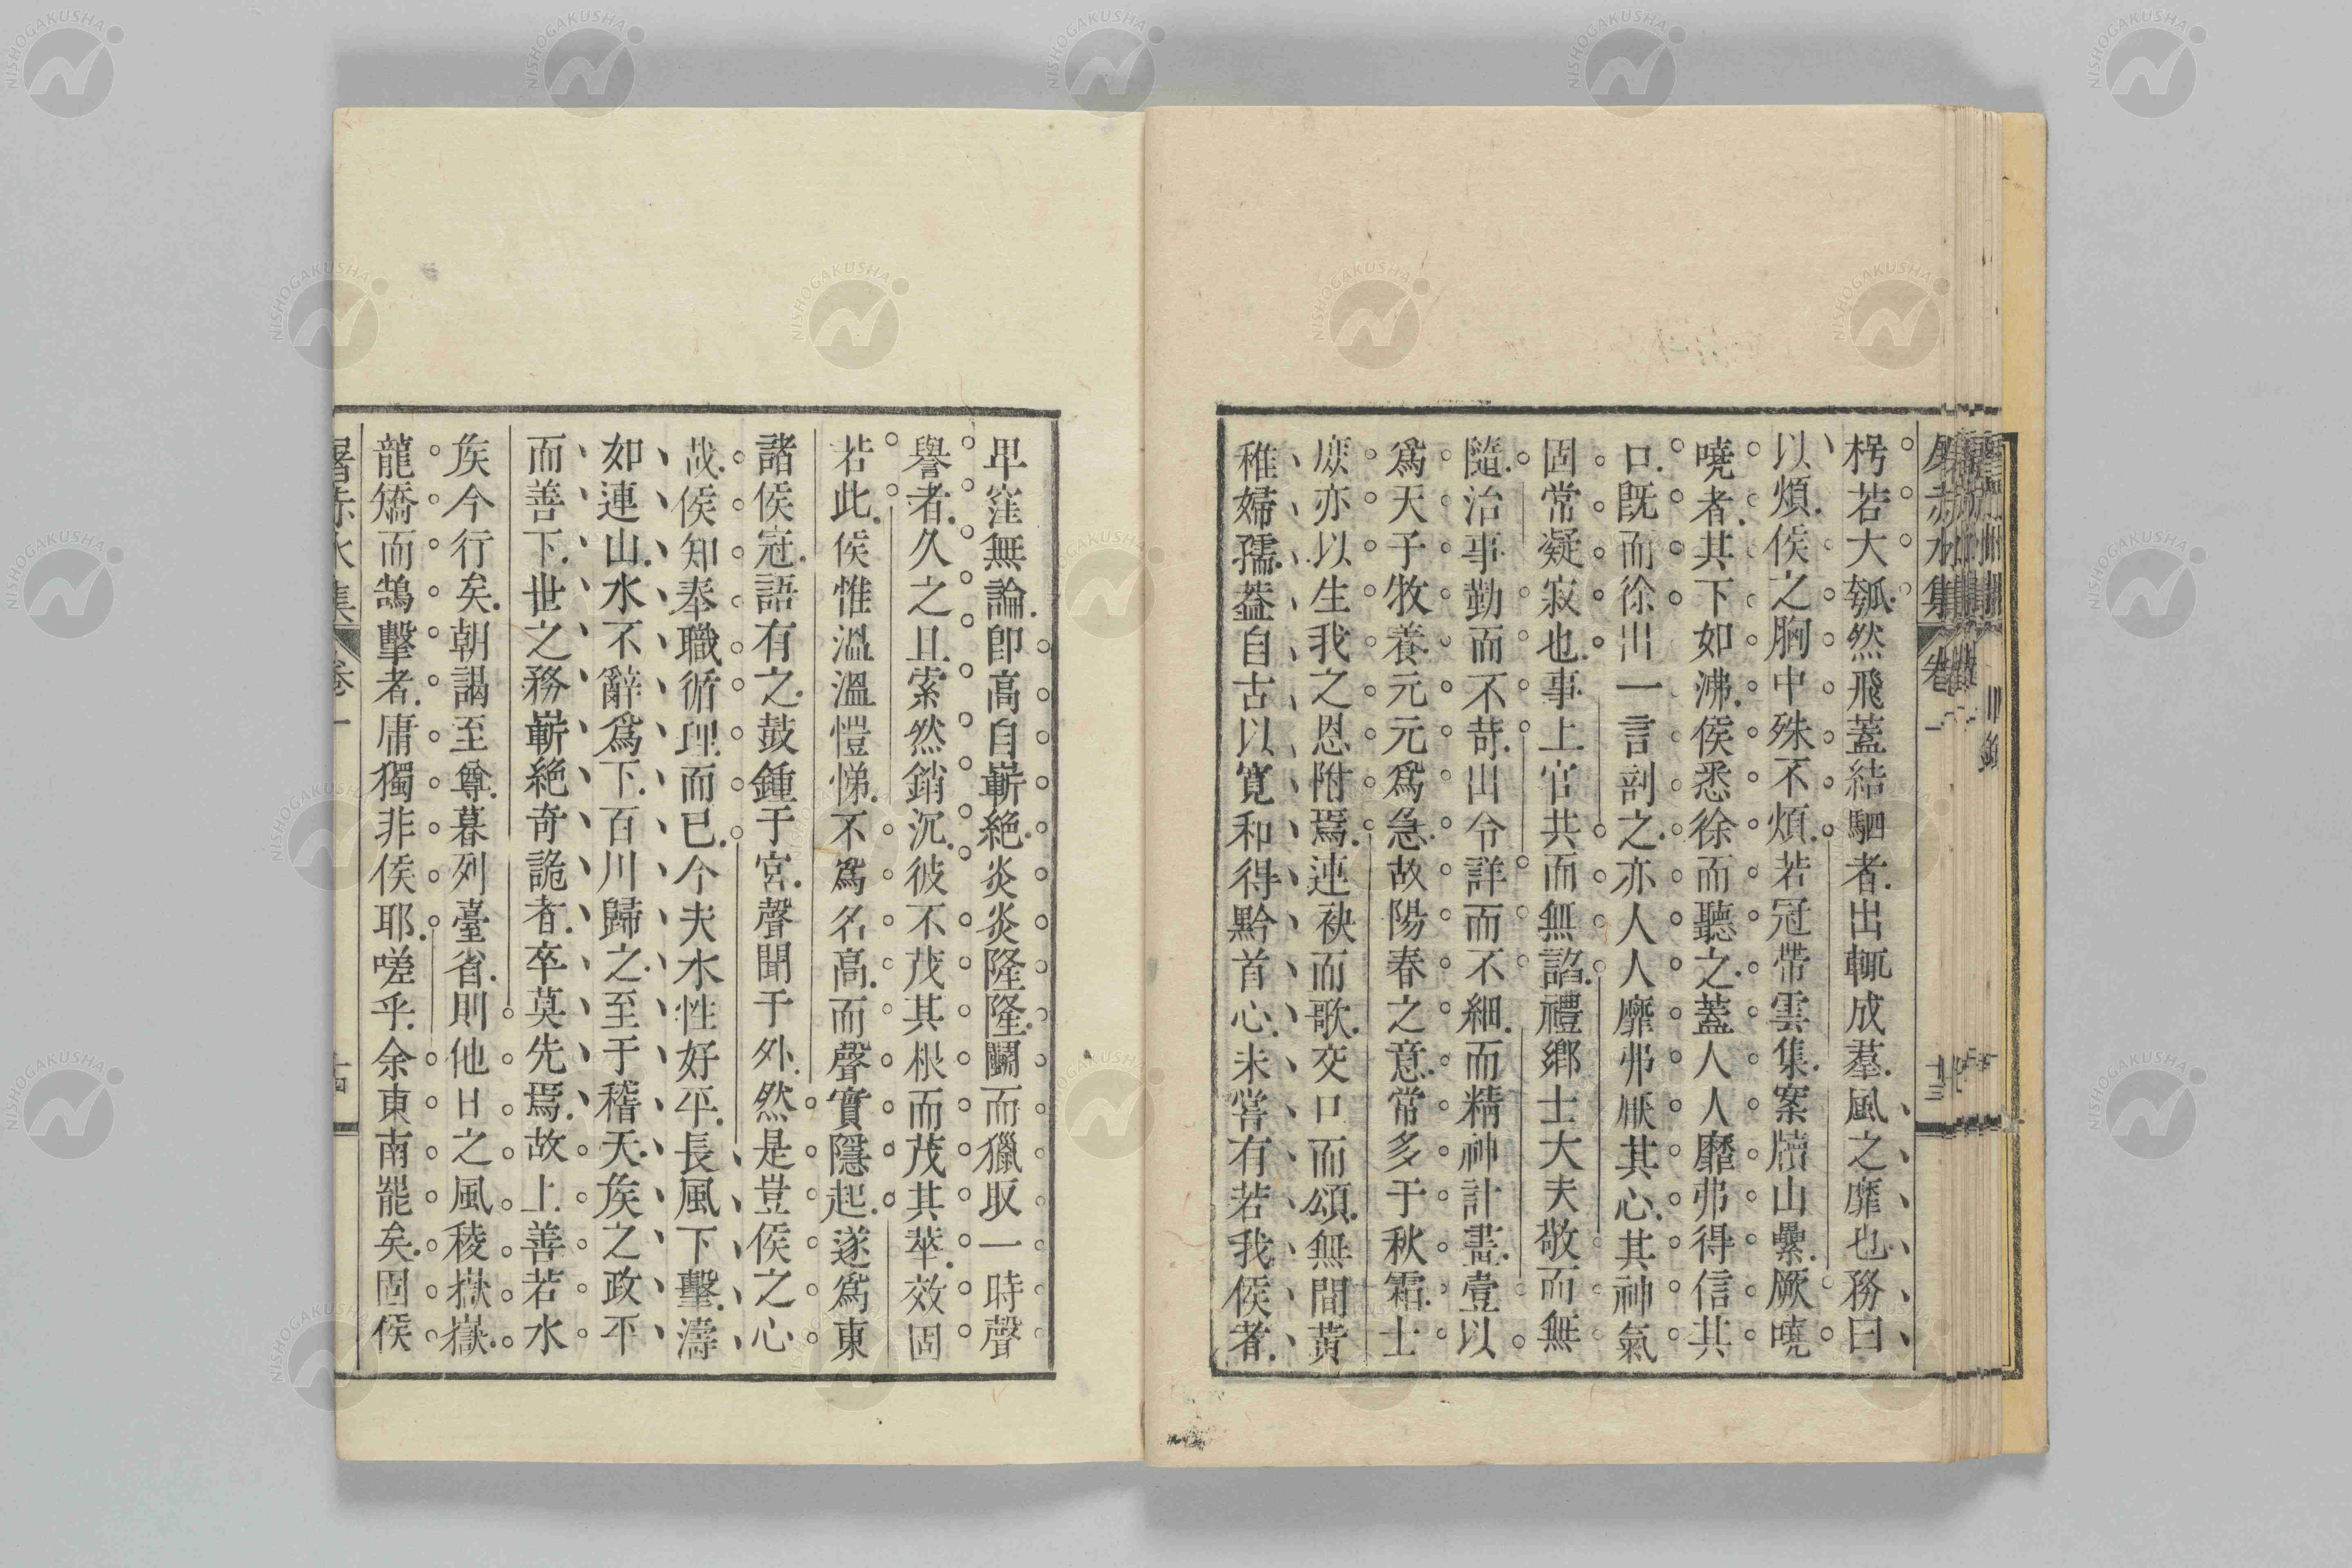 枵若大瓠然飛蓋結駟者出輒成羣風之靡也務曰
以煩侯之胸中殊不煩若冠帶雲集案牘山纍厥嘵
嘵者其下如沸侯悉徐而聽之蓋人人靡弗得信其
口既而徐出一言剖之亦人人靡弗厭其心其神氣
固常凝寂也事上官共而無諂禮鄉士大夫敬而無
隨治事勤而不苛出令詳而不細而精神計畫壹以
爲天子牧養元元爲急故陽春之意常多于秋霜士
庶亦以生我之恩附焉連袂而歌交口而頌無間黃
稚婦孺葢自古以寬和得黔首心未嘗有若我侯者
卑窪無論卽高自嶄絶炎炎隆隆鬭而獵取一時聲
譽者久之且索然銷沉彼不茂其根而茂其萃效固
若此侯惟溫溫愷悌不爲名高而聲實隱起遂爲東
諸侯冠語有之鼓鍾于宮聲聞于外然是豈侯之心
哉侯知奉職循理而已今夫水性好平長風下擊濤
如連山水不辭爲下百川歸之至于稽天矦之政平
而善下世之務嶄絶奇詭者卒莫先焉故上善若水
矦今行矣朝謁至尊暮列臺省則他日之風稜嶽嶽
龍矯而鵠擊者庸獨非侯耶嗟乎余東南罷矣固侯
屠赤水集
卷一
十四
NISHOGAKUSHA